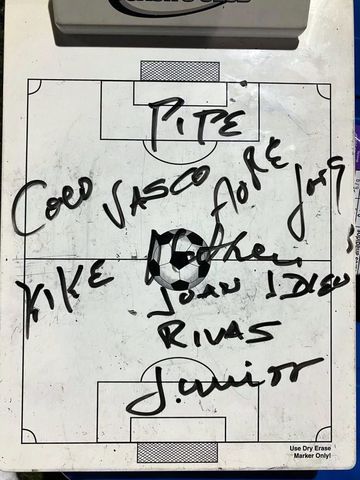 PIPE
COCO VASCO FLORE JOSÉ
KIKE
JOAN IDIEU
RIVAS
Junior
Use Dry Erase
Marker Only!